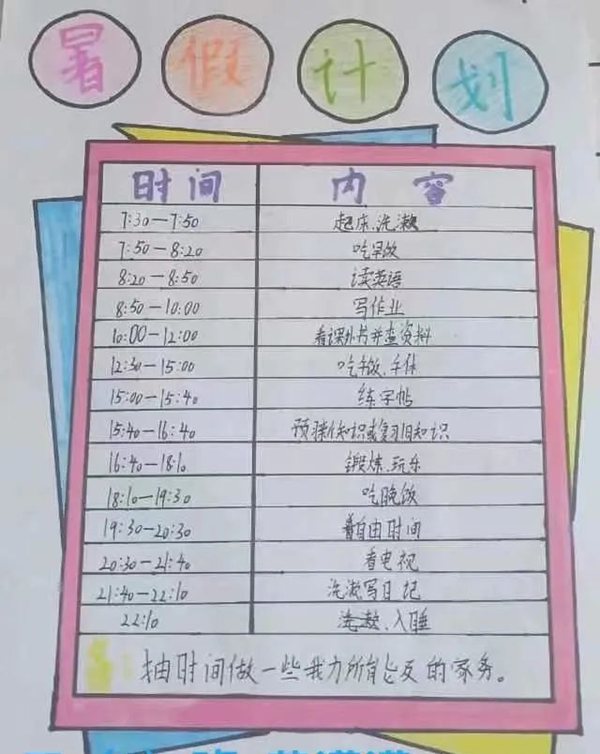 暑假计划
时间 内容
7:30—7:50 起床、洗漱
7:50—8:20 吃早饭
8:20—8:50 读英语
8:50—10:00 写作业
10:00—12:00 看课外书并查资料
12:30—15:00 吃午饭、午休
15:00—15:40 练字帖
15:40—16:40 预习新知识或复习旧知识
16:40—18:10 锻炼、玩乐
18:10—19:30 吃晚饭
19:30—20:30 自由时间
20:30—21:40 看电视
21:40—22:10 洗漱写日记
22:10 洗漱、入睡
抽时间做一些我力所能及的家务。